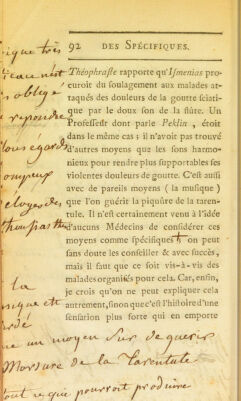 92 DES SPÉCIFIQUES.
Théophraste rapporte qu'Ismenias pro-
curoit du soulagement aux malades at-
taqués des douleurs de la goutte sciati-
que par le doux son de la flûre. Un
Professeur dont parle Peklin, étoit
dans le même cas; il n'avoit pas trouvé
d'autres moyens que les sons harmo-
nieux pour rendre plus supportables ses
violentes douleurs de goutte. C'est aussi
avec de pareils moyens (la musique)
que l'on guérit la piquûre de la taren-
tule. Il n'est certainement venu à l'idée
d'aucuns Médecins de considérer ces
moyens comme spécifiques † on peut
sans doute les conseiller & avec succès,
mais il faut que ce soit vis-à-vis des
malades organisés pour cela. Car, ensin,
je crois qu'on ne peut expliquer cela
autrement, sinon que c'est l'histoire d'une
sensation plus forte qui en emporte
ique très
n'est
obligé
répondre
égards
pompeux
éloges des
la
un moyen sur de guerir
Morsure de la Tarentule
tout ce que pourroit produire